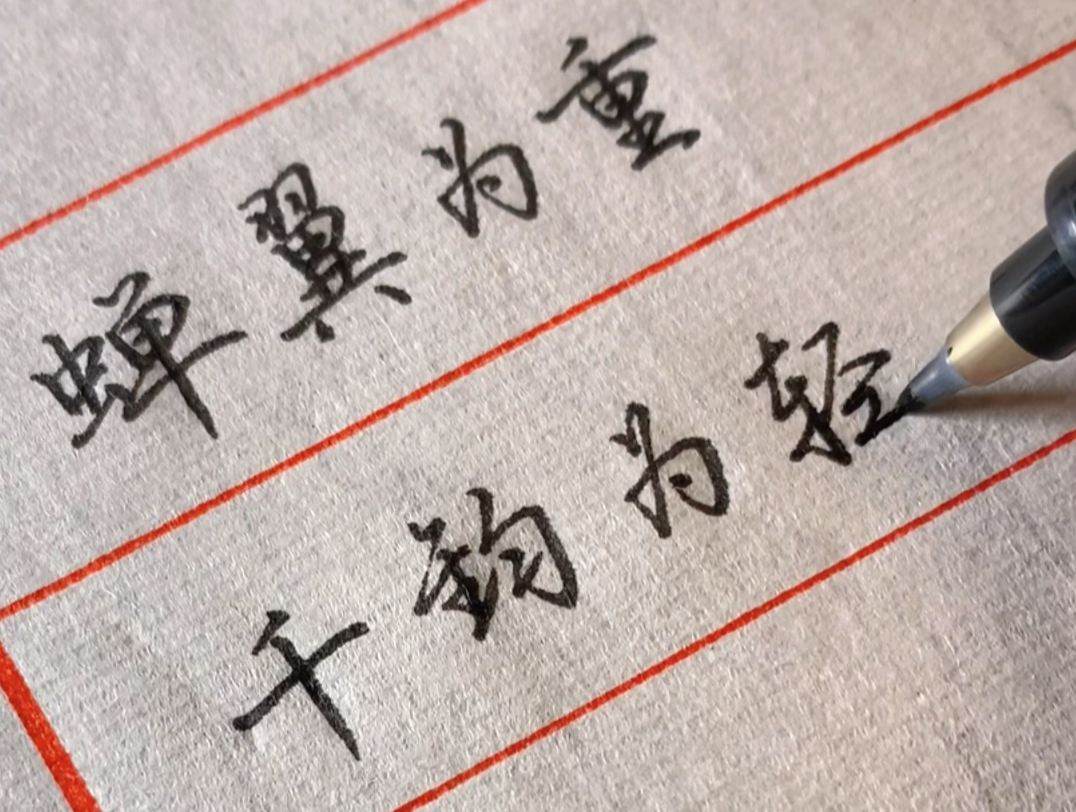 蝉翼为重
千钧为轻